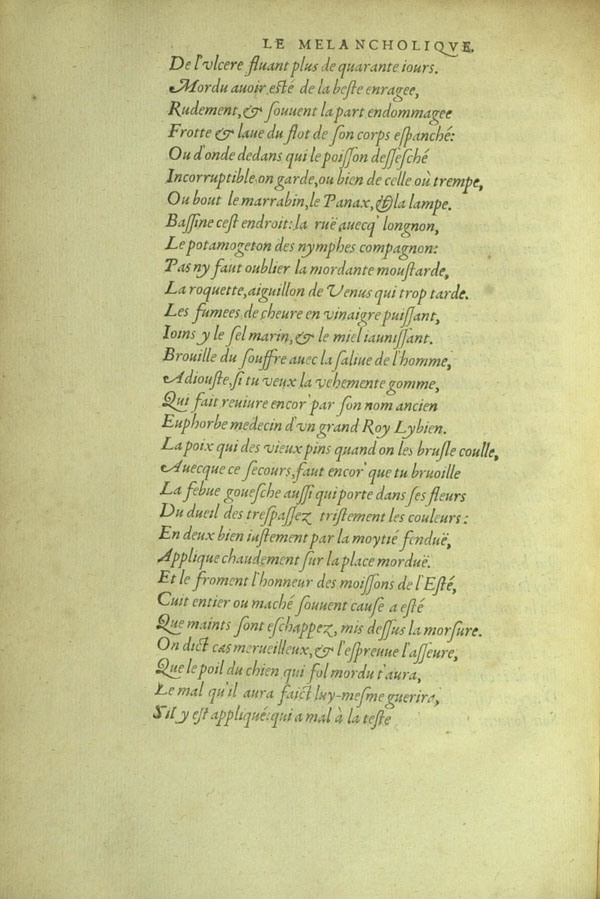 LE MELANCHOLIQVE.
De l'vlcere fluant plus de quarante iours.
Mordu auoir esté de la beste enragee,
Rudement, & souuent la part endommagee
Frotte & laue du flot de son corps espanché:
Ou d'onde dedans qui le poisson dessesché
Incorruptible on garde, ou bien de celle où trempe,
Ou bout le marrabin, le Panax, & la lampe.
Bassine cest endroit: la ruë auecq' longnon,
Le potamogeton des nymphes compagnon:
Pas ny faut oublier la mordante moustarde,
La roquette, aiguillon de Venus qui trop tarde.
Les fumees de cheure en vinaigre puissant,
Ioins y le sel marin, & le miel iaunissant.
Brouille du souffre auec la saliue de l'homme,
Adiouste, si tu veux la vehemente gomme,
Qui fait reuiure encor' par son nom ancien
Euphorbe medecin d'vn grand Roy Lybien.
La poix qui des vieux pins quand on les brusle coulle,
Auecque ce secours, faut encor' que tu bruoille
La febue gouesche aussi qui porte dans ses fleurs
Du dueil des trespassez tristement les couleurs:
En deux bien iustement par la moytié fenduë,
Applique chaudement sur la place morduë.
Et le froment l'honneur des moissons de l'Esté,
Cuit entier ou maché souuent cause a esté
Que maints sont eschappez, mis dessus la morsure.
On dict cas merueilleux, & l'espreuue l'asseure,
Que le poil du chien qui fol mordu t'aura,
Le mal qu'il aura faict luy-mesme guerira,
S'il y est appliqué: qui a mal à la teste